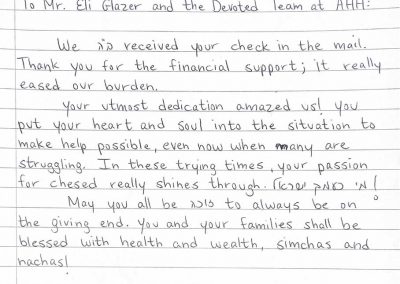 To Mr. Eli Glazer and the Devoted Team at AHH:
We ב"ה received your check in the mail.
Thank you for the financial support; it really
eased our burden.
Your utmost dedication amazed us! You
put your heart and soul into the situation to
make help possible, even now when many are
struggling. In these trying times, your passion
for chesed really shines through. מי כעמך ישראל!
May you all be זוכה to always be on
the giving end. You and your families shall be
blessed with health and wealth, simchas and
nachas!